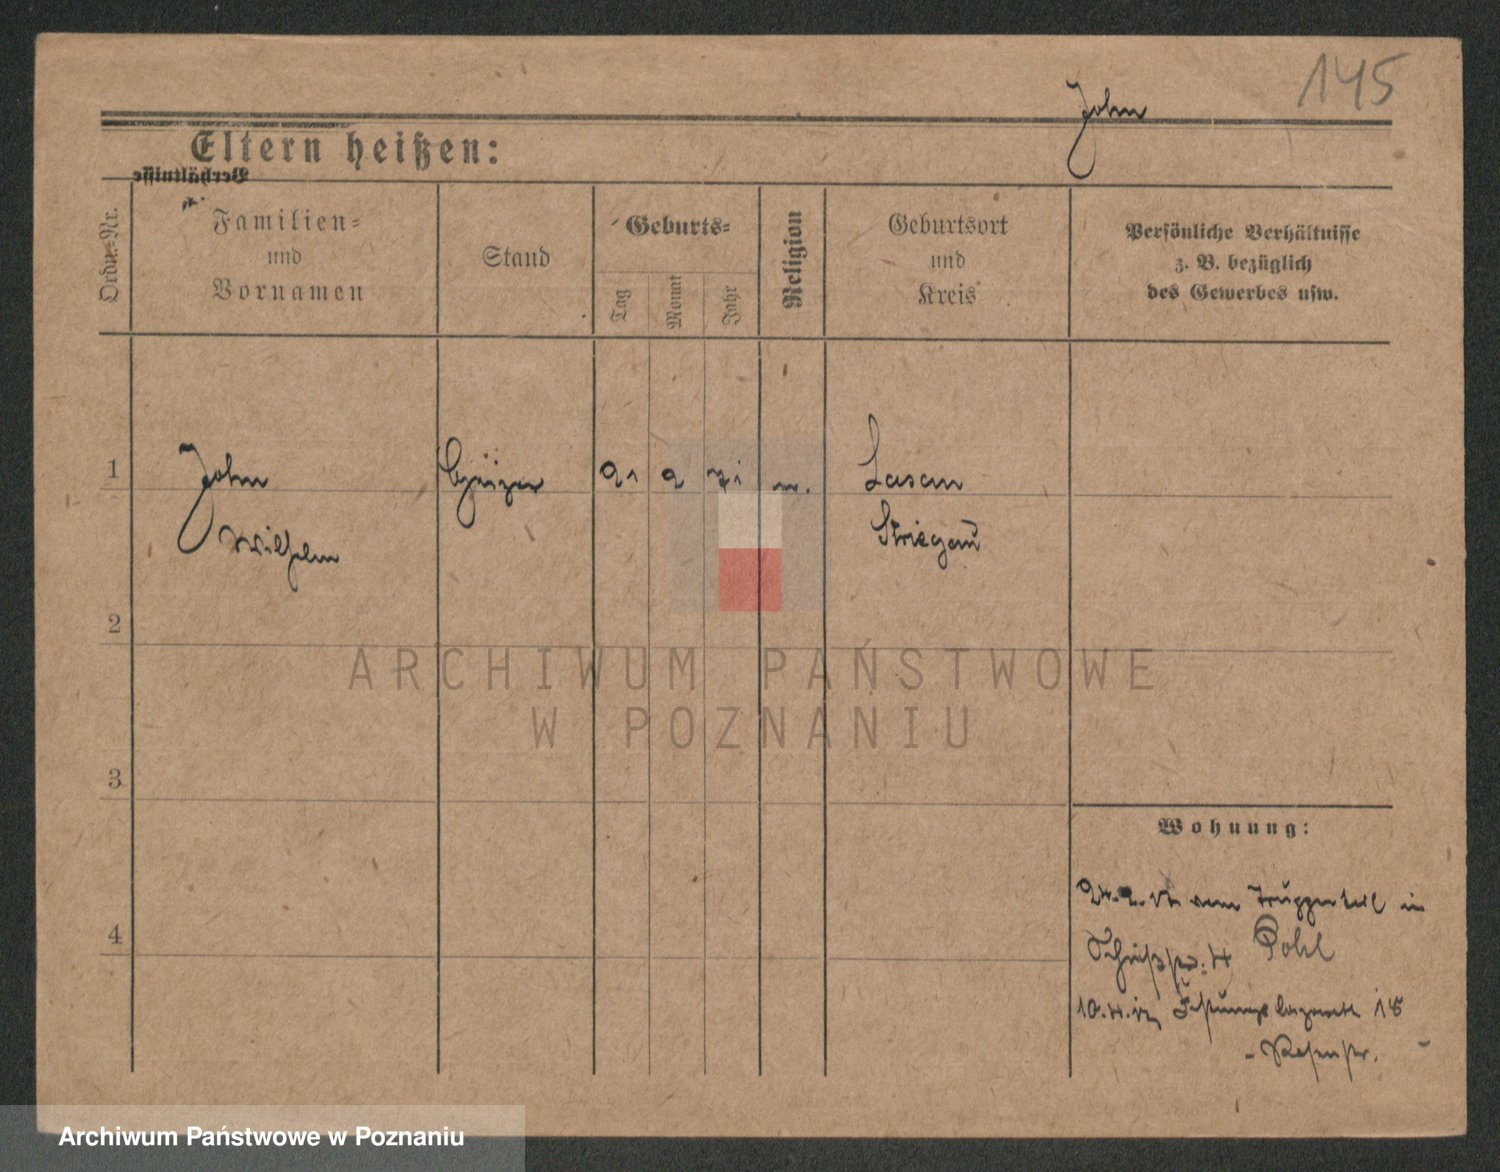 145
John
Eltern heißen:
Verhältnisse
Ordn.-Nr.
Familien-
und
Vornamen
Stand
Geburts-
Tag
Monat
Jahr
Religion
Geburtsort
und
Kreis
Persönliche Verhältnisse
z. B. bezüglich
des Gewerbes usw.
1
John
Wilhelm
Heizer
21 2 71
Lasan
Striegau
2
ARCHIWUM PAŃSTWOWE
W POZNANIU
3
Wohnung:
24.2.17 vom Truppenteil in
4
Pohl
10.4.17 Festungslazarett 15
Archiwum Państwowe w Poznaniu